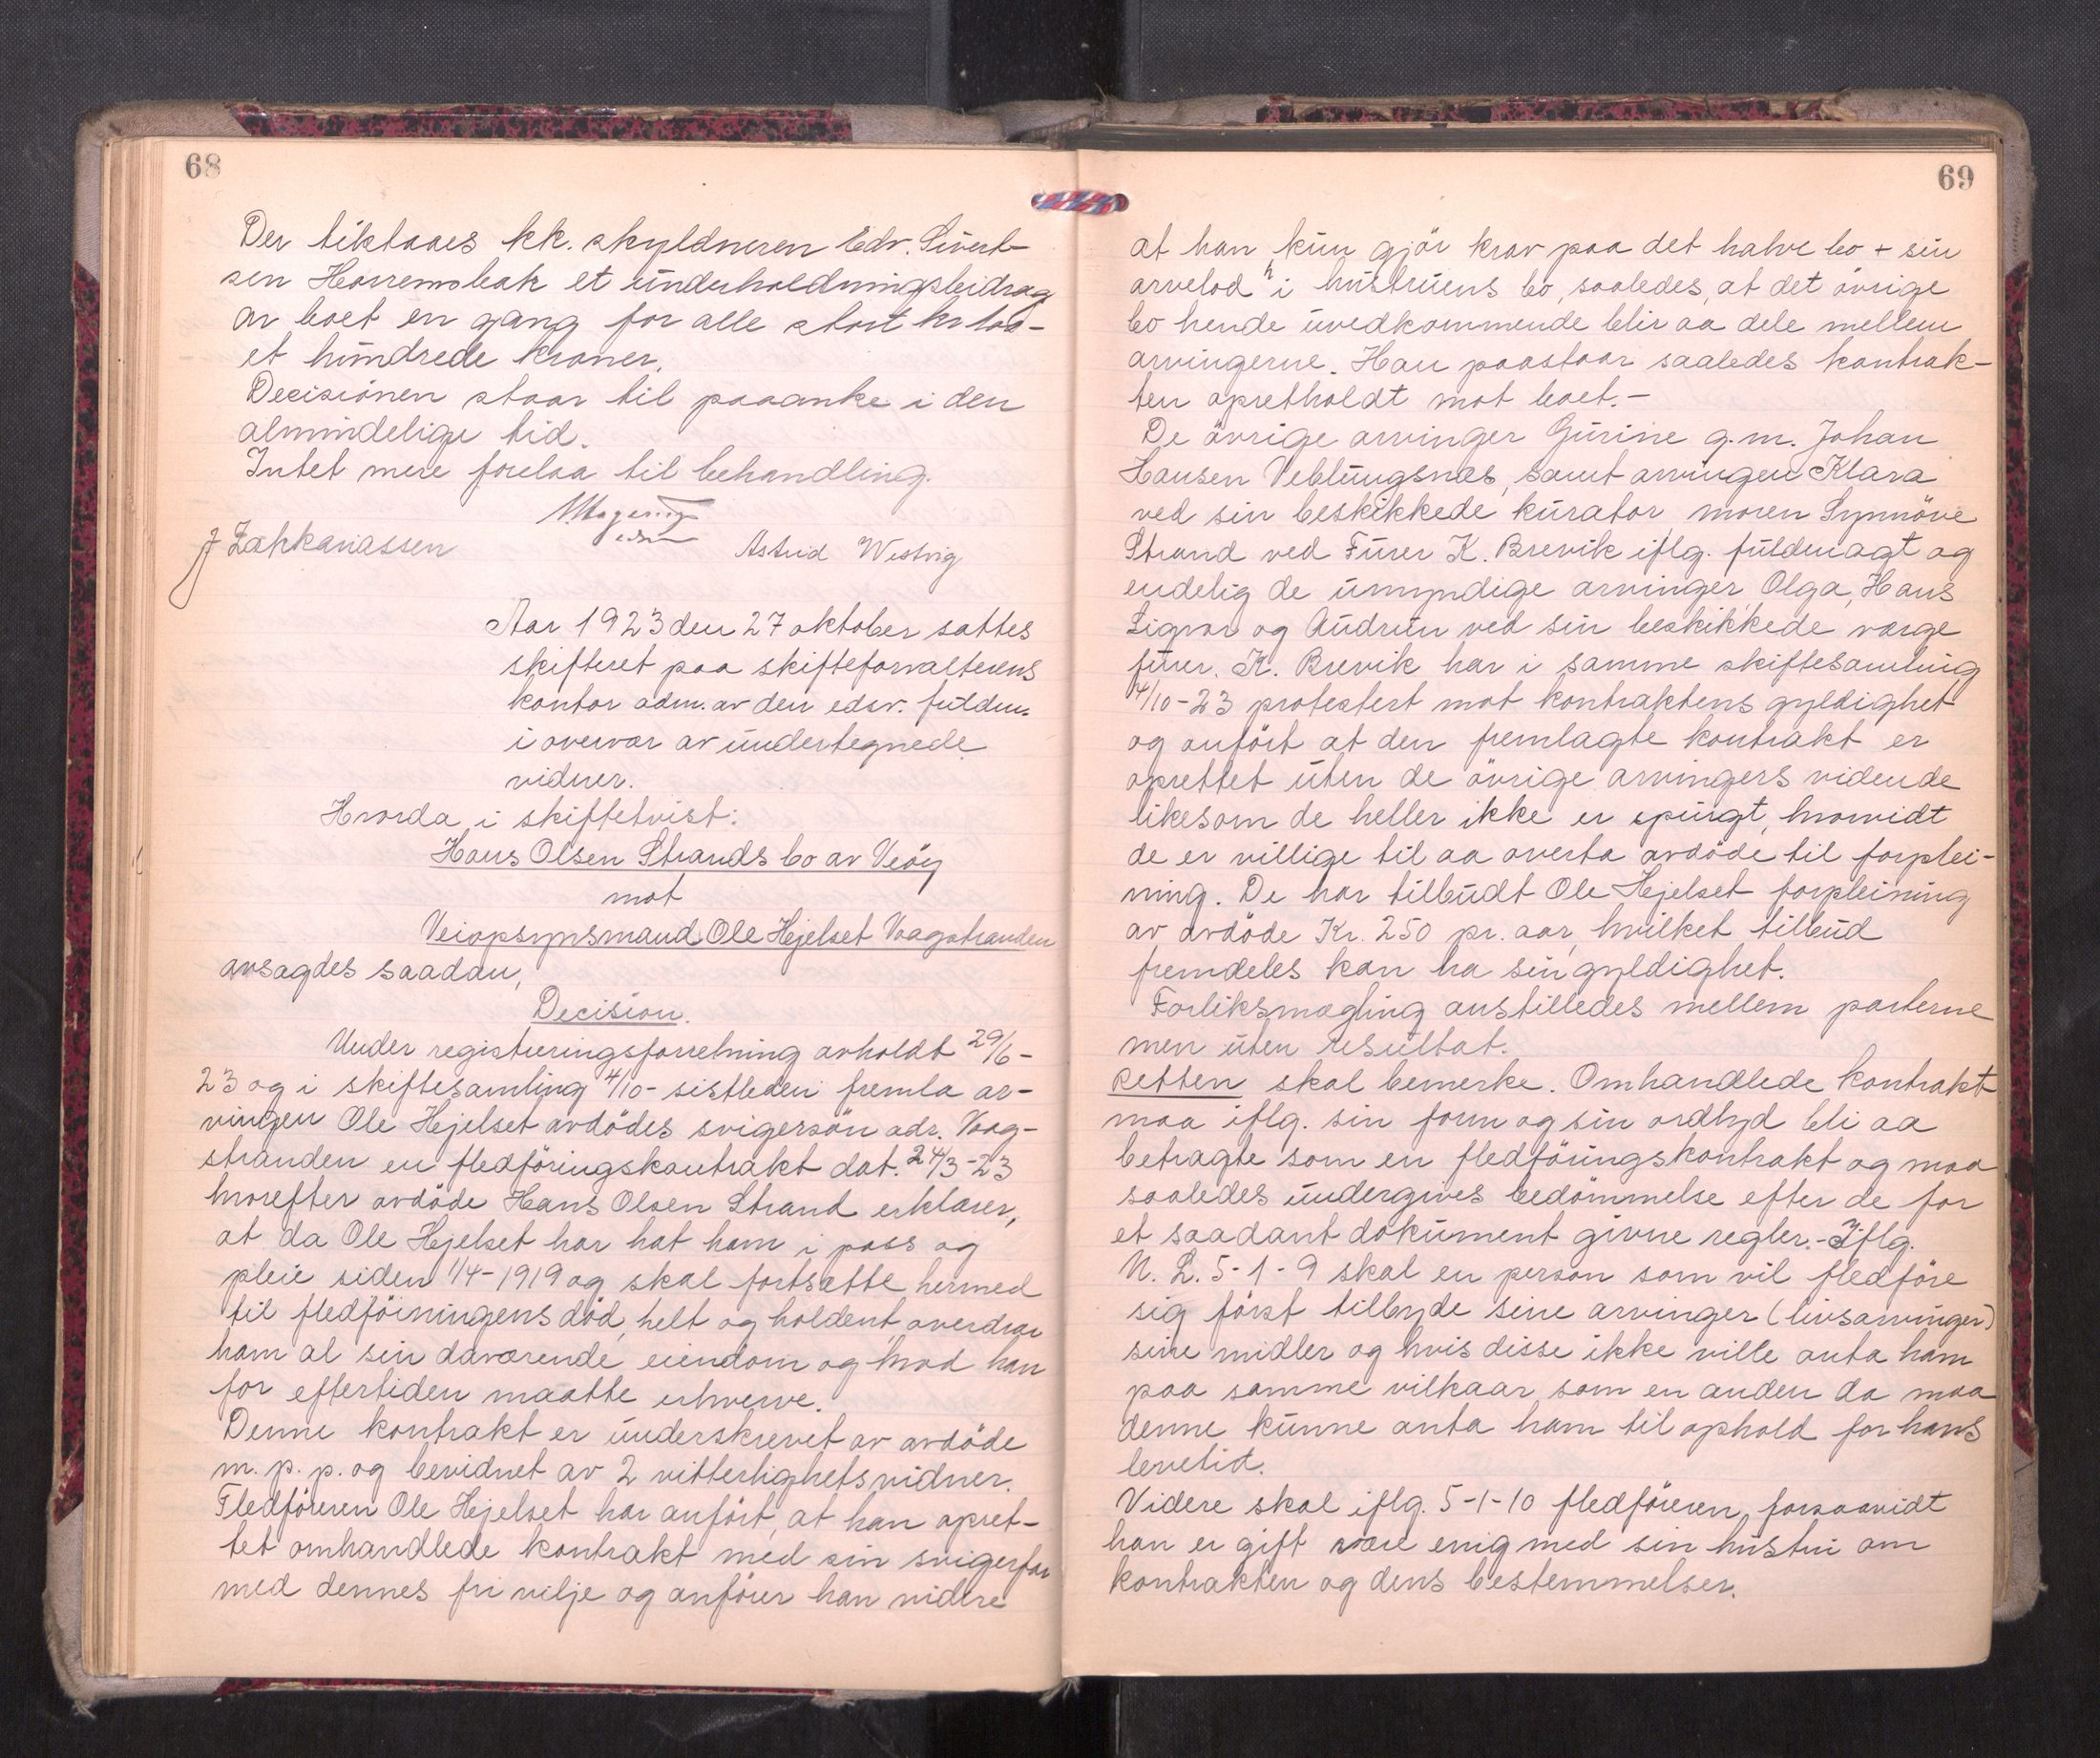 68
Der tilstaaes kk. skyldneren Edv. Sivert-
sen Horremsbak et underholdningsbeidrag
av boet en gang for alle stort kr 100 -
et hundrede kroner.
Decisionen staar til paaanke i den
almindelige tid.
Intet mere forelaa til behandling.
J Zakkariassen
Astrid Westvig
Aar 1923 den 27 oktober sattes
skifteret paa skifteforvalterens
kontor adm. av den edsv. fuldm.
i overvær av undertegnede
vidner.
Hvorda i skiftetvist:
Hans Olsen Strands bo av Veöy
mot
Veiopsynsmand Ole Hjelset Vaagstranden
avsagdes saadan,
Decision.
Under registreringsforretning avholdt 29/6-
23 og i skiftesamling 4/10- sistleden fremla ar-
vingen Ole Hjelset avdödes svigersön adr. Vaag-
stranden en fledföringskontrakt dat. 24/3-23
hvorefter avdöde Hans Olsen Strand erklærer,
at da Ole Hjelset har hat ham i pass og
pleie siden 1/4-1919 og skal fortsætte hermed
til fledföiningens död, helt og holdent overdrar
ham al sin daværende eiendom og hvad han
for eftertiden maatte erhverve.
Denne kontrakt er underskrevet av avdöde
m. p. p. og bevidnet av 2 vitterlighetsvidner.
Fledföreren Ole Hjelset har anfört, at han opret-
tet omhandlede kontrakt med sin svigerfar
med dennes fri vilje og anförer han videre
69
at han kun gjör krav paa det halve bo + sin
arvelod i hustruens bo, saaledes, at det övrige
bo hende uvedkommende blir aa dele mellem
arvingerne. Han paastaar saaledes kontrak-
ten opretholdt mot boet.-
De övrige arvinger Gurine g.m. Johan
Hansen Veblungsnæs, samt arvingen Klara
ved sin beskikkede kurator moren Synnöve
Strand ved Furer K. Brevik iflg. fuldmagt og
endelig de umyndige arvinger Olga, Hans
Sigvar og Audrun ved sin beskikkede værge
furer. K. Brevik har i samme skiftesamling
4/10-23 protestert mot kontraktens gyldighet
og anfört at den fremlagte kontrakt er
oprettet uten de övrige arvingers vidende
likesom de heller ikke er spurgt, hvorvidt
de er villige til aa overta avdöde til forplei-
ning. De har tilbudt Ole Hjelset forpleining
av avdöde Kr. 250 pr. aar, hvilket tilbud
fremdeles kan ha sin gyldighet.
Forliksmægling anstilledes mellem parterne
men uten resultat.
Retten skal bemerke. Omhandlede kontrakt
maa iflg. sin form og sin ordlyd bli aa
betragte som en fledföringskontrakt og maa
saaledes undergives bedömmelse efter de for
et saadant dokument givne regler.- Iflg.
N. L. 5-1-9 skal en person som vil fledföre
sig först tilbyde sine arvinger (livsarvinger)
sine midler og hvis disse ikke ville anta ham
paa samme vilkaar som en anden da maa
denne kunne anta ham til ophold for hans
levetid.
Videre skal iflg. 5-1-10 fledföreren, forsaavidt
han er gift være enig med sin hustru om
kontrakten og dens bestemmelser.